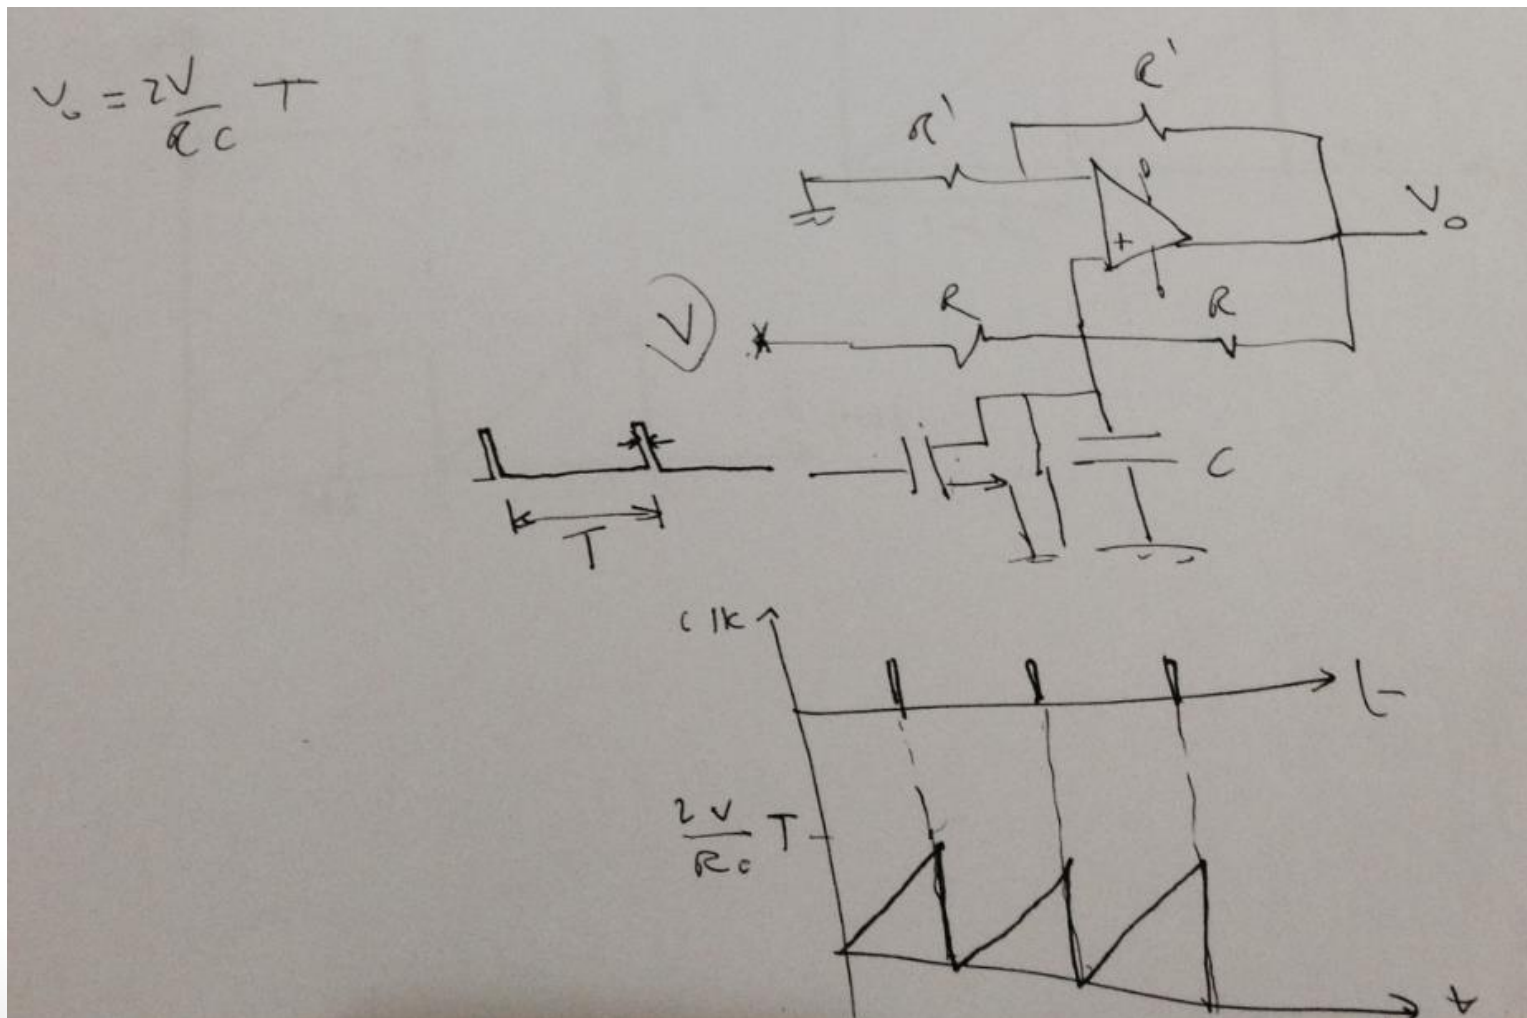 V₀ = 2V/RC T
R'
R'
V₀
+
V
R
R
C
T
clk
t
2V/RC T
t